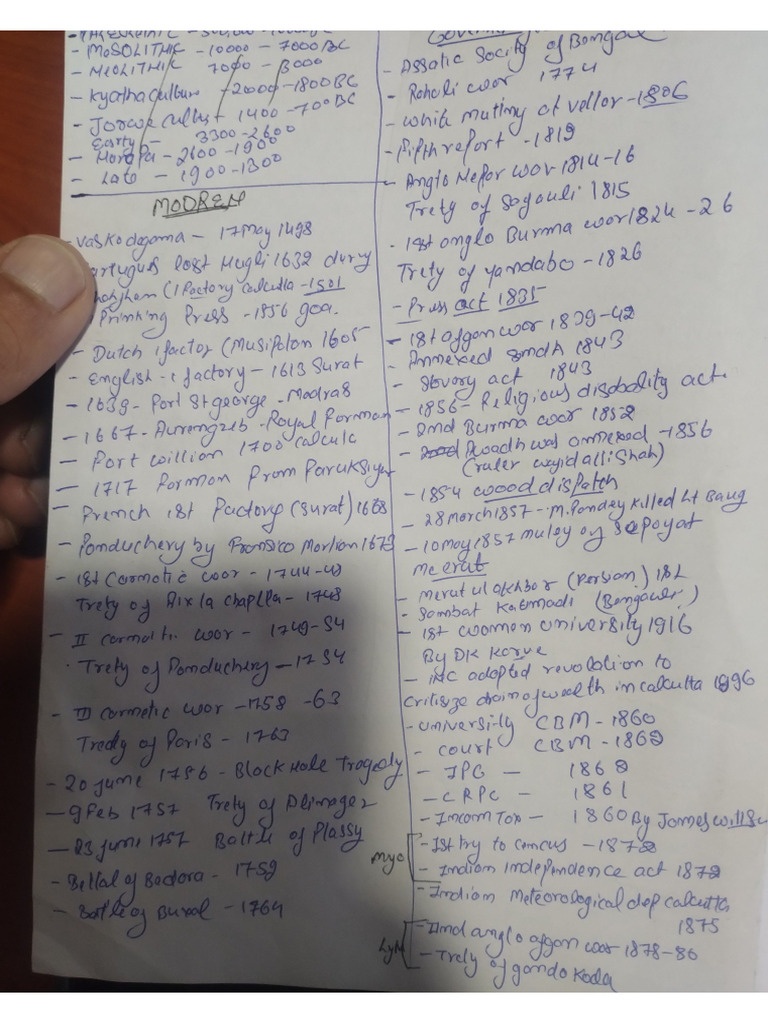 - MOSOLITHIC - 10000 - 7000 BC
- MEOLITHIC 7000 - 3000
- Kyatha culture - 2000 - 1800 BC
- Jorwe Cultur 1400 - 700 BC
Early - 3300 - 2600
- Harapa - 2600 - 1900
- Late - 1900 - 1300
MODREN
- Vaskodagama - 17 May 1498
lost Hugli 1632 during
(1 Factory calcutta - 1501
Prinking Press - 1556 goa.
- Dutch 1 factor (Musipolon 1605
- English - 1 factory - 1613 Surat
- 1639 - Fort St george - Madras
- 1667 - Aurengzeb - Royal Forman
- Fort willion 1700 calcutc
- 1717 Forman From Faruksiyar
- French 1st Factory (Surat) 1668
- Ponduchery by Fransico Martion 1673
- 1st Carmatic woor - 1744-48
Trety of Aix la chaplla - 1748
- II carmatic wor - 1749-54
Trety of Ponduchery - 1754
- III carmetic wor - 1758 - 63
Trety of Paris - 1763
- 20 June 1756 - Block hole Tragedy
- 9 Feb 1757 Trety of Alinager
- 23 June 1757 Battle of Plassy
- Bettal of Bedora - 1759
- Battle of Buxal - 1764
- Assatic Socity of Bengal
- Roheli wor 1774
- White mutiny at vellor - 1806
- Fifth report - 1812
- Anglo Nepar wor 1814-16
Trety of Sogauli 1815
- 1st anglo Burma wor 1824 - 26
Trety of yandabo - 1826
- Press act 1835
- 1st afgan wor 1839-42
- Annexed sindh 1843
- Slavory act 1843
- 1856 - Religious disability act.
- 2nd Burma wor 1852
- Awadh was annexed - 1856
(ruler wajid alli Shah)
- 1854 wood dispatch
- 28 March 1857 - M. Pandey killed Lt Baug
- 10 May 1857 mutey of Sepoy at
Meerut
- Merut ul akhbar (Persian) 1st
- Sombat Kaumadi (Bengali)
- 1st women university 1916
By DK Karve
- INC adopted revolation to
critisize drain of wealth in calcutta 1896
- University CBM - 1860
- Court CBM - 1862
- IPC - 1862
- CRPC - 1861
- Incom Tax - 1860 By James
Myo
- 1st try to cencus - 1872
- Indian independence act 1872
- Indian Meteorological dep calcutta
1875
Lyto
- IInd anglo afgan wor 1878-80
- Trety of gondo Koda